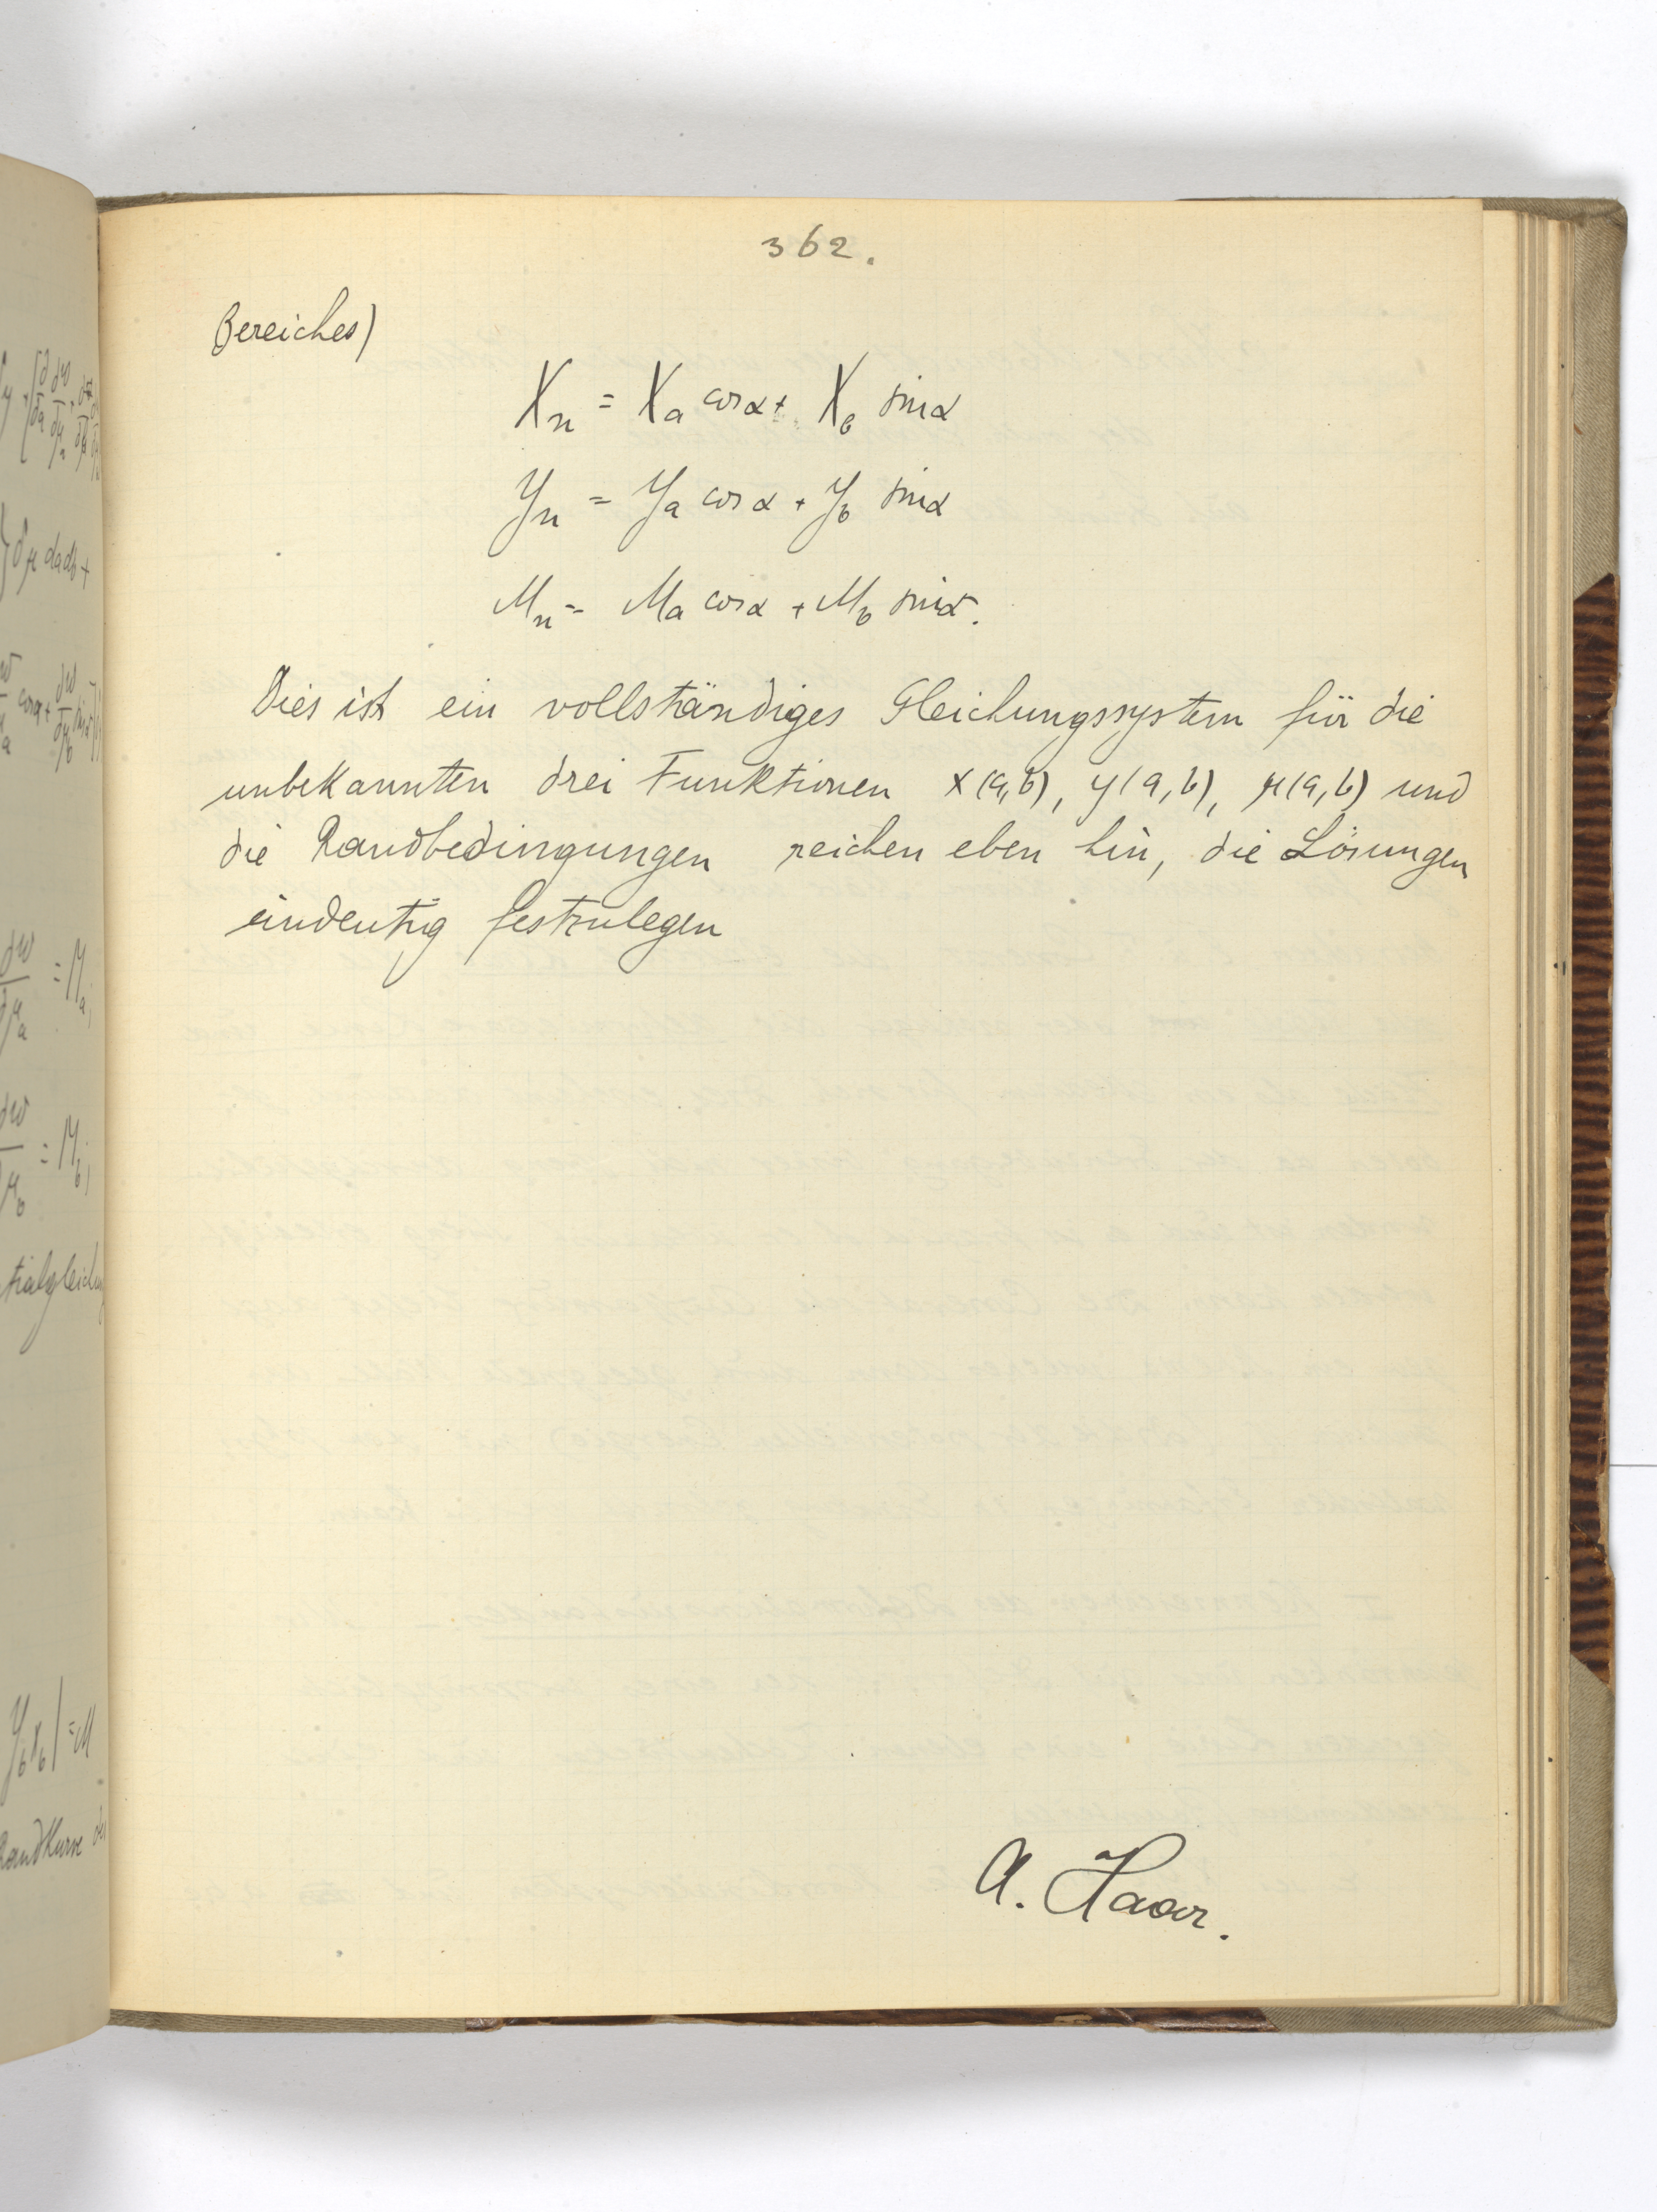 362.
Bereiches)
Xₙ = Xₐ cos α + X_b sin α
Yₙ = Yₐ cos α + Y_b sin α
Mₙ = Mₐ cos α + M_b sin α.
Dies ist ein vollständiges Gleichungssystem für die
unbekannten drei Funktionen x(a,b), y(a,b), μ(a,b) und
die Randbedingungen reichen eben hin, die Lösungen
eindeutig festzulegen
A. Haar.